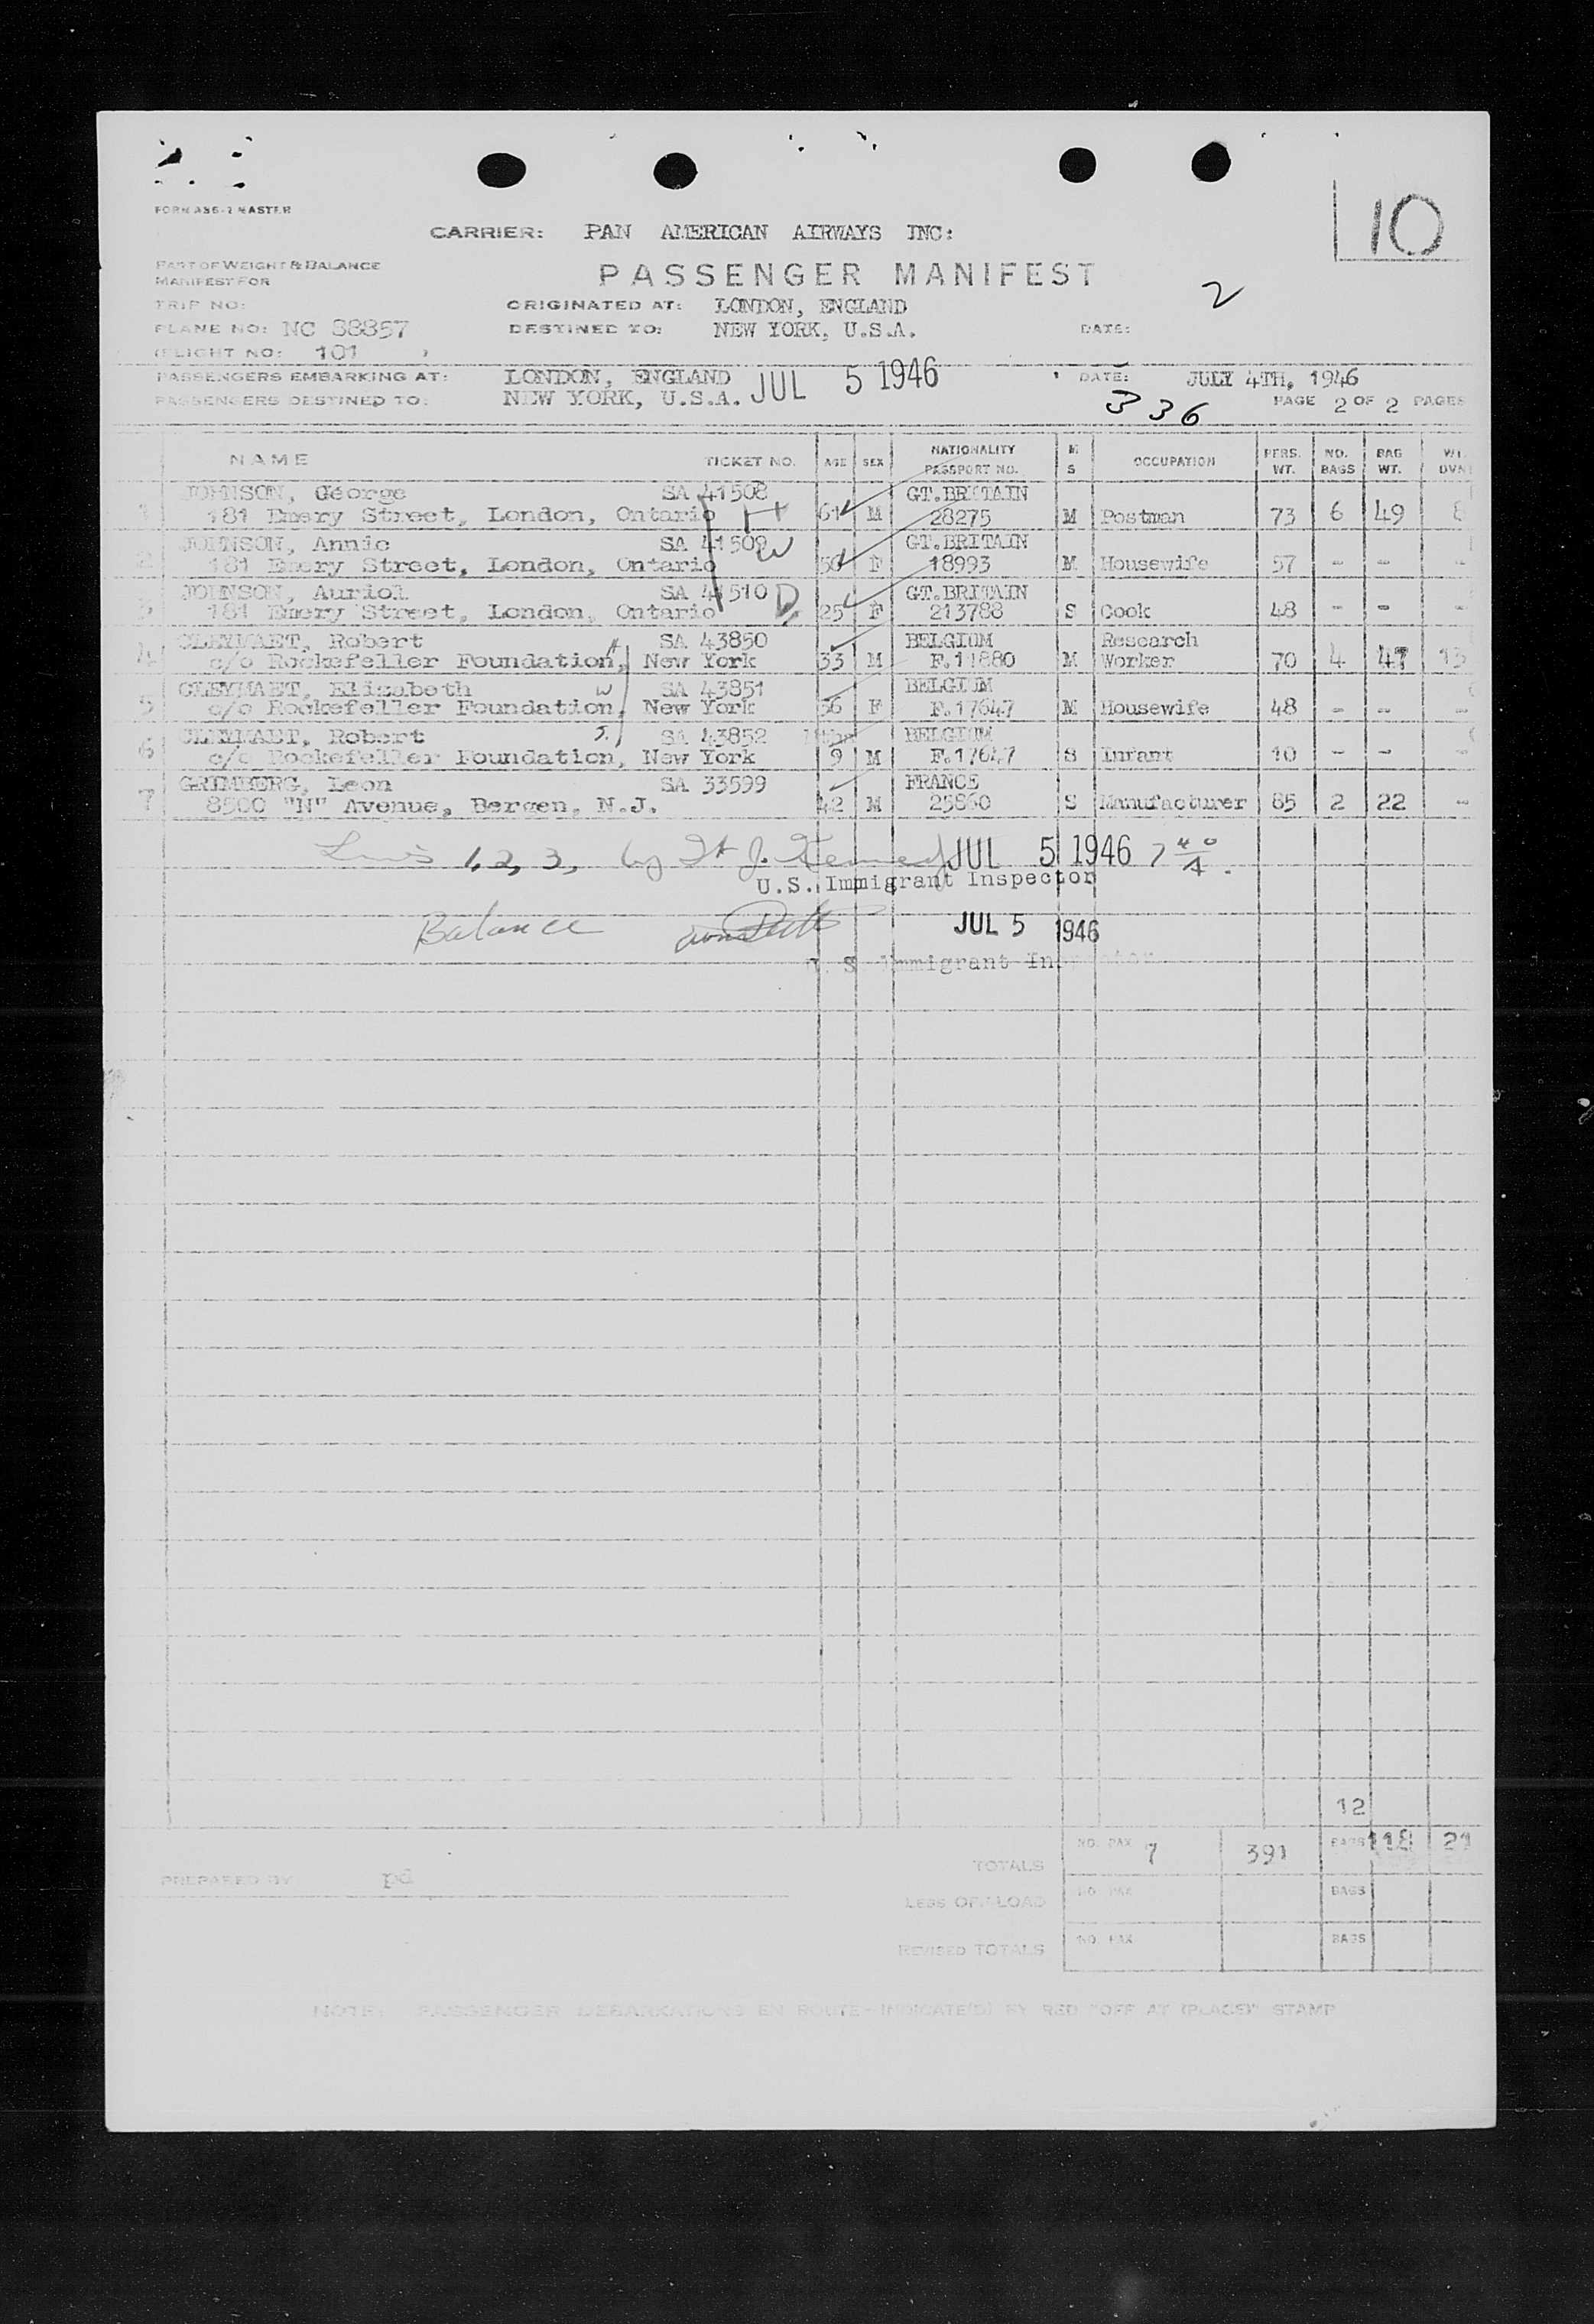 FORM A86-2 MASTER
10
CARRIER: PAN AMERICAN AIRWAYS INC:
PART OF WEIGHT & BALANCE
MANIFEST FOR
PASSENGER MANIFEST
2
TRIP NO:
ORIGINATED AT: LONDON, ENGLAND
PLANE NO: NC 88857
DESTINED TO: NEW YORK, U.S.A.
DATE:
(FLIGHT NO: 101 )
PASSENGERS EMBARKING AT: LONDON, ENGLAND JUL 5 1946 DATE: JULY 4TH, 1946
PASSENGERS DESTINED TO: NEW YORK, U.S.A. 336 PAGE 2 OF 2 PAGES
NAME TICKET NO. AGE SEX NATIONALITY PASSPORT NO. M S OCCUPATION PERS. WT. NO. BAGS BAG WT. WT.
JOHNSON, George SA 41508 GT.BRITAIN
1 181 Emery Street, London, Ontario H 61 M 28275 M Postman 73 6 49 8
JOHNSON, Annie SA 41509 W GT.BRITAIN
2 181 Emery Street, London, Ontario F 18993 M Housewife 57 - - -
JOHNSON, Auriol SA 41510 D GT.BRITAIN
3 181 Emery Street, London, Ontario 25 F 213788 S Cook 48 - - -
CLEYMAET, Robert H SA 43850 BELGIUM Research
4 c/o Rockefeller Foundation, New York 33 M F.11880 M Worker 70 4 47 13
CLEYMAET, Elisabeth W SA 43851 BELGIUM
5 c/o Rockefeller Foundation, New York 36 F F.17647 M Housewife 48 - - -
CLEYMAET, Robert S. SA 43852 BELGIUM
6 c/o Rockefeller Foundation, New York 9 M F.17647 S Infant 10 - - -
GRIMBERG, Leon SA 33599 FRANCE
7 8500 "N" Avenue, Bergen, N.J. 42 M 25860 S Manufacturer 85 2 22 -
1, 2, 3, by J. JUL 5 1946 7 40/A.
U.S. Immigrant Inspector
Balance JUL 5 1946
U. S Immigrant Inspector
12
TOTALS NO. PAX 7 391 BAGS 118 21
PREPARED BY pd
LESS OFF-LOAD NO. PAX BAGS
REVISED TOTALS NO. PAX BAGS
NOTE: PASSENGER DEBARKATIONS EN ROUTE-INDICATE(D) BY RED "OFF AT (PLACE)" STAMP